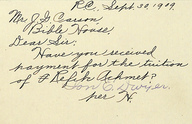 R.C., Sept. 30, 1909.
Mr. J. G. Carson,
Bible House,
Dear Sir,
Have you received
payment for the tuition
of F. Refik Achmet?
Don C. Dwyer.
per N.